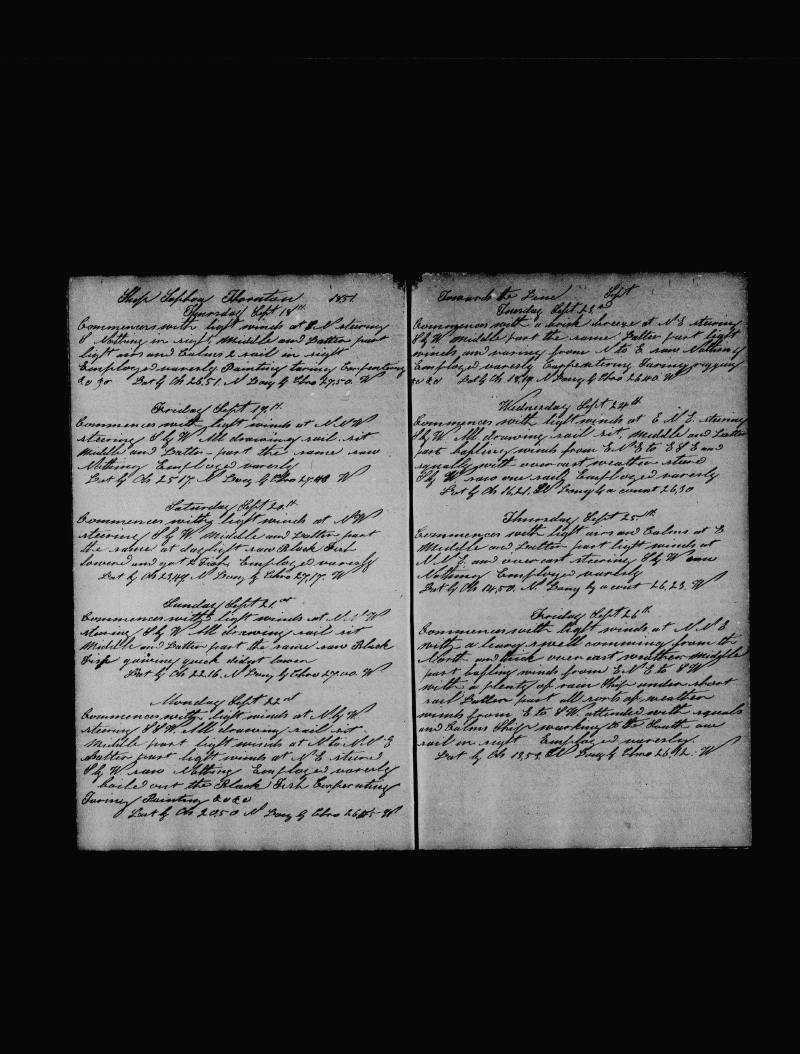 Ship Sophia Thornton 1851
Thursday Sept 18th
Commences with light winds at N steering
S Nothing in sight Middle and Latter part
light airs and Calms 2 sail in sight
Employed vaersly Painting taring Carpentering
&c &c Lat by Ob 26,51. N Long by Chro 27,50. W
Friday Sept 19th
Commences with light winds at N N W
steering S by W All drawing sail sit
Middle and Latter part the same saw
Nothing Employed vaersly
Lat by Ob 25 17. N Long by Chro 27,48 W
Saturday Sept 20th
Commences with light winds at N W
steering S by W Middle and Latter part
the same at daylight saw Black Fish
lowered and got 2 Fish. Employed vaersly
Lat by Ob 23,49 N Long by Chro 27,17. W
Sunday Sept 21st
Commences with light winds at N N W
steering S by W All drawing sail sit
Middle and Latter part the same saw Black
Fish going quick didnt lower
Lat by Ob 22 16. N Long by Chro 27,00. W
Monday Sept 22nd
Commences with light winds at N by W
steering S S W. All drawing sail sit
Middle part light winds at N to N N E
Latter part light winds at N E steering
S by W saw Nothing Employed vaersly
boild out the Black Fish Carpentering
Taring Painting &c &c
Lat by Ob 20 50 N Long by Chro 26 45 W
Towards the Line Sept
Tuesday Sept 23rd
Commences with a brisk breeze at N E steering
S by W Middle part the same Latter part light
winds and varing from N to E saw Nothing
Employed vaersly Carpentering Taring rigging
&c &c Lat by Ob 18,19 N Long by Chro 26 40. W
Wednesday Sept 24th
Commences with light winds at E N E steering
S by W All drawing sail sit, Middle and Latter
part bafling winds from E N E to E S E and
squally with overcast weather steering
S by W saw one sail Employed vaersly
Lat by Ob 16 21. N Long by account 26,30
Thursday Sept 25th
Commences with light airs and Calms at E
Middle and Latter part light winds at
N N E. and overcast steering S by W saw
Nothing Employed vaersly
Lat by Ob 14,50. N Long by acount 26,23. W
Friday Sept 26th
Commences with light winds at N N E
with a heavy swell comming from the
North and thick overcast weather Middle
part bafling winds from E N E to S W
with a plenty of rain Ship under short
sail Latter part all sorts of weather
winds from E to S W attended with squals
and Calms Ship working to the South one
sail in sight Employed vaersly.
Lat by Ob 13,58 N Long by Chro 26,12. W